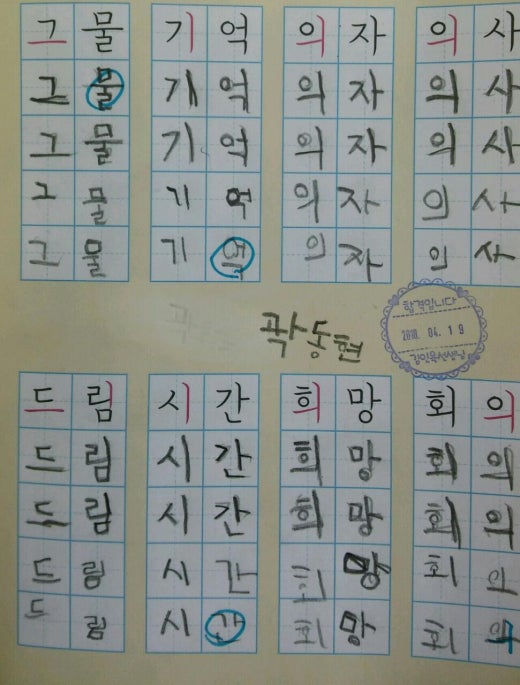 그물 기억 의자 의사
그물 기억 의자 의사
그물 기억 의자 의사
그물 기억 의자 의사
그물 기억 의자 의사
곽동현
합격입니다
드림 시간 희망 회의
드림 시간 희망 회의
드림 시간 희망 회의
드림 시간 희망 회의
드림 시간 희망 회의